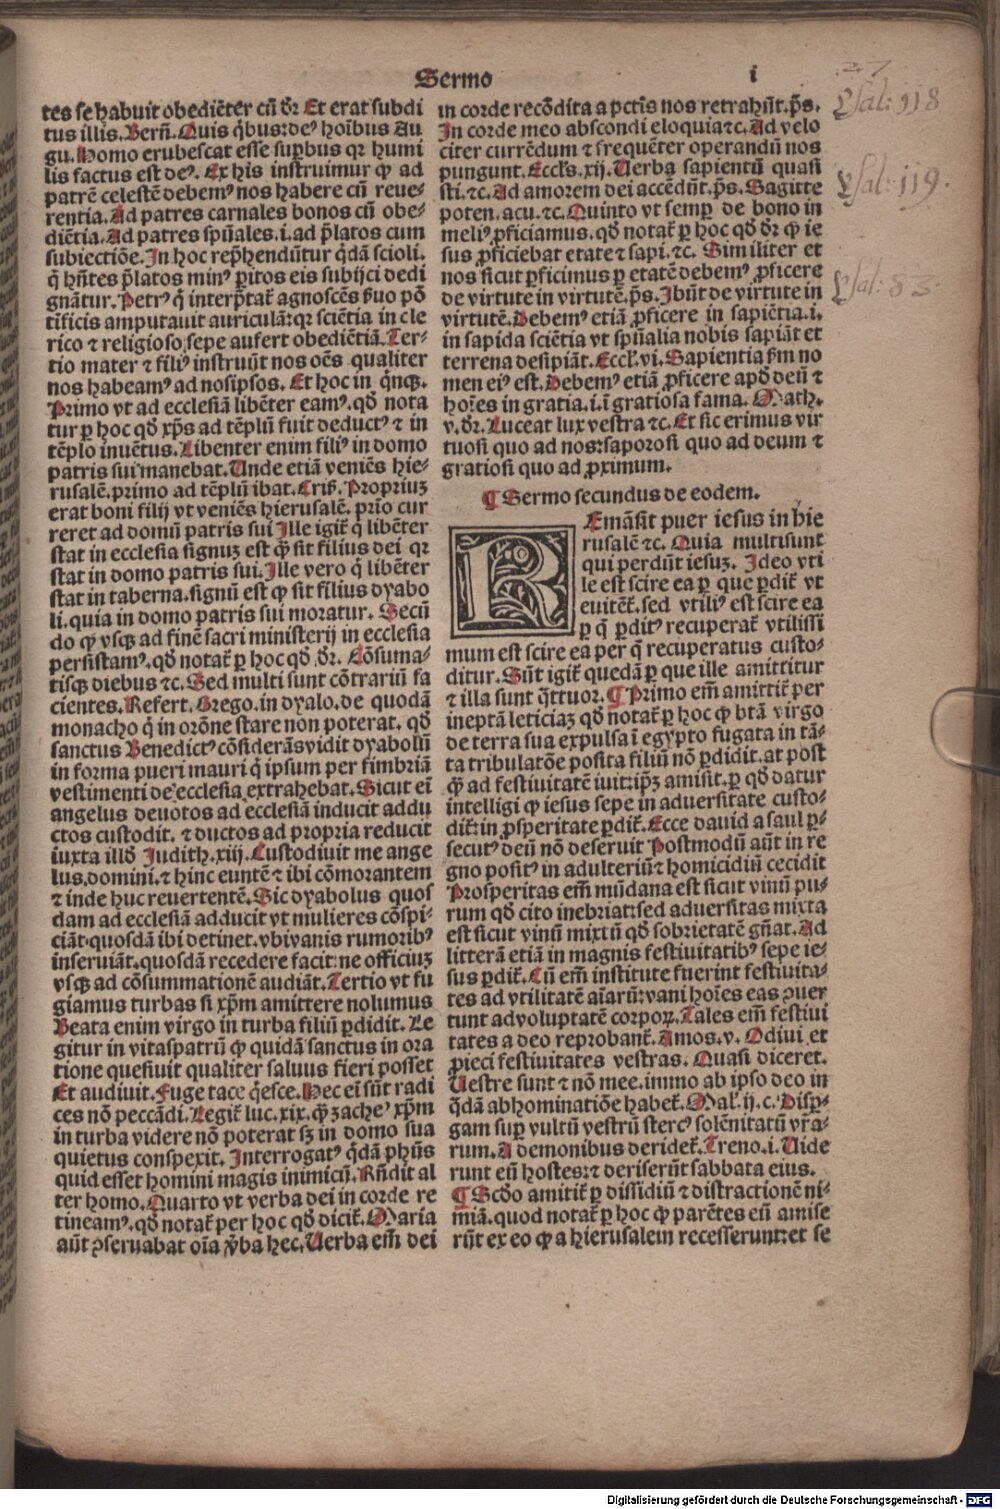 Sermo i
tes se habuit obediēter cū dr̄ Et erat subdi
tus illis. Bern̄. Quis q̇bus: deꝰ hoībus Au
gu. Homo erubescat esse suꝑbus qꝛ humi
lis factus est deꝰ. Ex his instruimur ꝙ ad
patrē celestē debemꝰ nos habere cū reue-
rentia. Ad patres carnales bonos cū obe-
diētia. Ad patres spūales .i. ad p̄latos cum
subiectiōe. In hoc rep̄hendūtur q̇dā scioli.
q̇ hn̄tes p̄latos minꝰ ꝑitos eis subijci dedi
gnātur. Petrꝰ q̇ interp̄tat̄ agnoscēs ẜuo pō
tificis amputauit auriculā: qꝛ sciētia in cle
rico ⁊ religioso sepe aufert obediētiā. Ter-
tio mater ⁊ filiꝰ instruūt nos oēs qualiter
nos habeamꝰ ad nosipsos. Et hoc in q̇nqꝫ.
Primo vt ad ecclesiā libēter eamꝰ. qd̄ nota
tur ꝑ hoc qd̄ xp̄s ad tēplū fuit deductꝰ ⁊ in
tēplo inuētus. Libenter enim filiꝰ in domo
patris sui manebat. Unde etiā veniēs hie-
rusalē. primo ad tēplū ibat. Criẜ. Propriuꝫ
erat boni filij vt veniēs hierusalē. prīo cur
reret ad domū patris sui Ille igit̄ q̇ libēter
stat in ecclesia signuꝫ est ꝙ sit filius dei qꝛ
stat in domo patris sui. Ille vero q̇ libēter
stat in taberna. signū est ꝙ sit filius dyabo
li. quia in domo patris sui moratur. Secū
do ꝙ vsqꝫ ad finē sacri ministerij in ecclesia
persistamꝰ. qd̄ notat̄ ꝑ hoc qd̄ dr̄. Cōsuma-
tisqꝫ diebus ⁊c. Sed multi sunt cōtrariū fa
cientes. Refert. Grego. in dyalo. de quodā
monacho q̇ in orōne stare non poterat. qd̄
sanctus Benedictꝰ cōsiderās vidit dyabolū
in forma pueri mauri q̇ ipsum per fimbriā
vestimenti de ecclesia extrahebat. Sicut eī
angelus deuotos ad ecclesiā inducit addu
ctos custodit. ⁊ ductos ad propria reducit
iuxta illd̄ Judith. xiij. Custodiuit me ange
lus domini. ⁊ hinc euntē ⁊ ibi cōmorantem
⁊ inde huc reuertentē. Sic dyabolus quos
dam ad ecclesiā adducit vt mulieres cōspi-
ciāt. quosdā ibi detinet. vbi vanis rumoribꝰ
inseruiāt. quosdā recedere facit: ne officiuꝫ
vsqꝫ ad cōsummationē audiāt. Tertio vt fu
giamus turbas si xp̄m amittere nolumus
Beata enim virgo in turba filiū ꝑdidit. Le
gitur in vitaspatrū ꝙ quidā sanctus in ora
tione quesiuit qualiter saluus fieri posset
Et audiuit. Fuge tace q̇esce. Hec eī sūt radi
ces nō peccādi. Legit̄ luc. xix. ꝙ zacheꝰ xp̄m
in turba videre nō poterat sꝫ in domo sua
quietus conspexit. Interrogatꝰ q̇dā ph̄us
quid esset homini magis inimicū. Rn̄dit al
ter homo. Quarto vt verba dei in corde re
tineamꝰ. qd̄ notat̄ per hoc qd̄ dicit̄. Maria
aūt ꝯseruabat oīa v̄ba hec. Uerba em̄ dei
in corde recōdita a pctīs nos retrahūt. ps̄.
In corde meo abscondi eloquia ⁊c. Ad velo
citer currēdum ⁊ frequēter operandū nos
pungunt. Eccls̄. xij. Uerba sapientū quasi
sti. ⁊c. Ad amorem dei accēdūt. ps̄. Sagitte
poten. acu. ⁊c. Quinto vt semꝑ de bono in
meliꝰ ꝓficiamus. qd̄ notat̄ ꝑ hoc qd̄ dr̄ ꝙ ie
sus ꝓficiebat etate ⁊ sapi. ⁊c. Similiter et
nos sicut ꝓficimus ꝑ etatē debemꝰ ꝓficere
de virtute in virtutē. ps̄. Ibūt de virtute in
virtutē. Debemꝰ etiā ꝓficere in sapiētia .i.
in sapida sciētia vt spūalia nobis sapiāt et
terrena desipiāt. Eccl̄. vi. Sapientia ẜm no
men eiꝰ est. Debemꝰ etiā ꝓficere apd̄ deū ⁊
hoīes in gratia .i. ī gratiosa fama. Math.
v. dr̄. Luceat lux vestra ⁊c. Et sic erimus vir
tuosi quo ad nos: saporosi quo ad deum ⁊
gratiosi quo ad ꝓximum.
¶ Sermo secundus de eodem.
REmāsit puer iesus in hie
rusalē ⁊c. Quia multi sunt
qui perdūt iesuꝫ. Ideo vti
le est scire ea ꝑ que ꝑdit̄ vt
euitet̄. sed vtiliꝰ est scire ea
ꝑ q̄ ꝑditꝰ recuperat̄ vtilissi
mum est scire ea per q̄ recuperatus custo-
ditur. Sūt igit̄ quedā ꝑ que ille amittitur
⁊ illa sunt q̄ttuor. ¶ Primo em̄ amittit̄ per
ineptā leticiaꝫ qd̄ notat̄ ꝑ hoc ꝙ btā virgo
de terra sua expulsa ī egypto fugata in tā-
ta tribulatōe posita filiū nō ꝑdidit. at post
ꝙ ad festiuitatē iuit: ip̄ꝫ amisit. ꝑ qd̄ datur
intelligi ꝙ iesus sepe in aduersitate custo-
dit̄: in ꝓsperitate ꝑdit̄. Ecce dauid a saul ꝑ-
secutꝰ deū nō deseruit Postmodū aūt in re
gno positꝰ in adulteriū ⁊ homicidiū cecidit
Prosperitas em̄ mūdana est sicut vinū pu-
rum qd̄ cito inebriat: sed aduersitas mixta
est sicut vinū mixtū qd̄ sobrietatē gn̄at. Ad
litterā etiā in magnis festiuitatibꝰ sepe ie-
sus ꝑdit̄. Cū em̄ institute fuerint festiuita-
tes ad vtilitatē aīarū: vani hoīes eas ꝯuer
tunt ad voluptatē corpoꝝ. Tales em̄ festiui
tates a deo reprobant̄. Amos. v. Odiui et
ꝓieci festiuitates vestras. Quasi diceret.
Uestre sunt ⁊ nō mee. immo ab ipso deo in
q̄dā abhominatiōe habet̄. Mal̄. ij. c. Disꝑ-
gam suꝑ vultū vestrū stercꝰ solēnitatū vr̄a-
rum. A demonibus deridet̄. Treno. i. Uide
runt eū hostes: ⁊ deriserūt sabbata eius.
¶ Scd̄o amitit̄ ꝑ dissidiū ⁊ distractionē ni-
miā. quod notat̄ ꝑ hoc ꝙ parētes eū amise
rūt ex eo ꝙ a hierusalem recesserunt: et se
27
Psal: 118
Psal: 119.
Psal: 83.
Digitalisierung gefördert durch die Deutsche Forschungsgemeinschaft - DFG